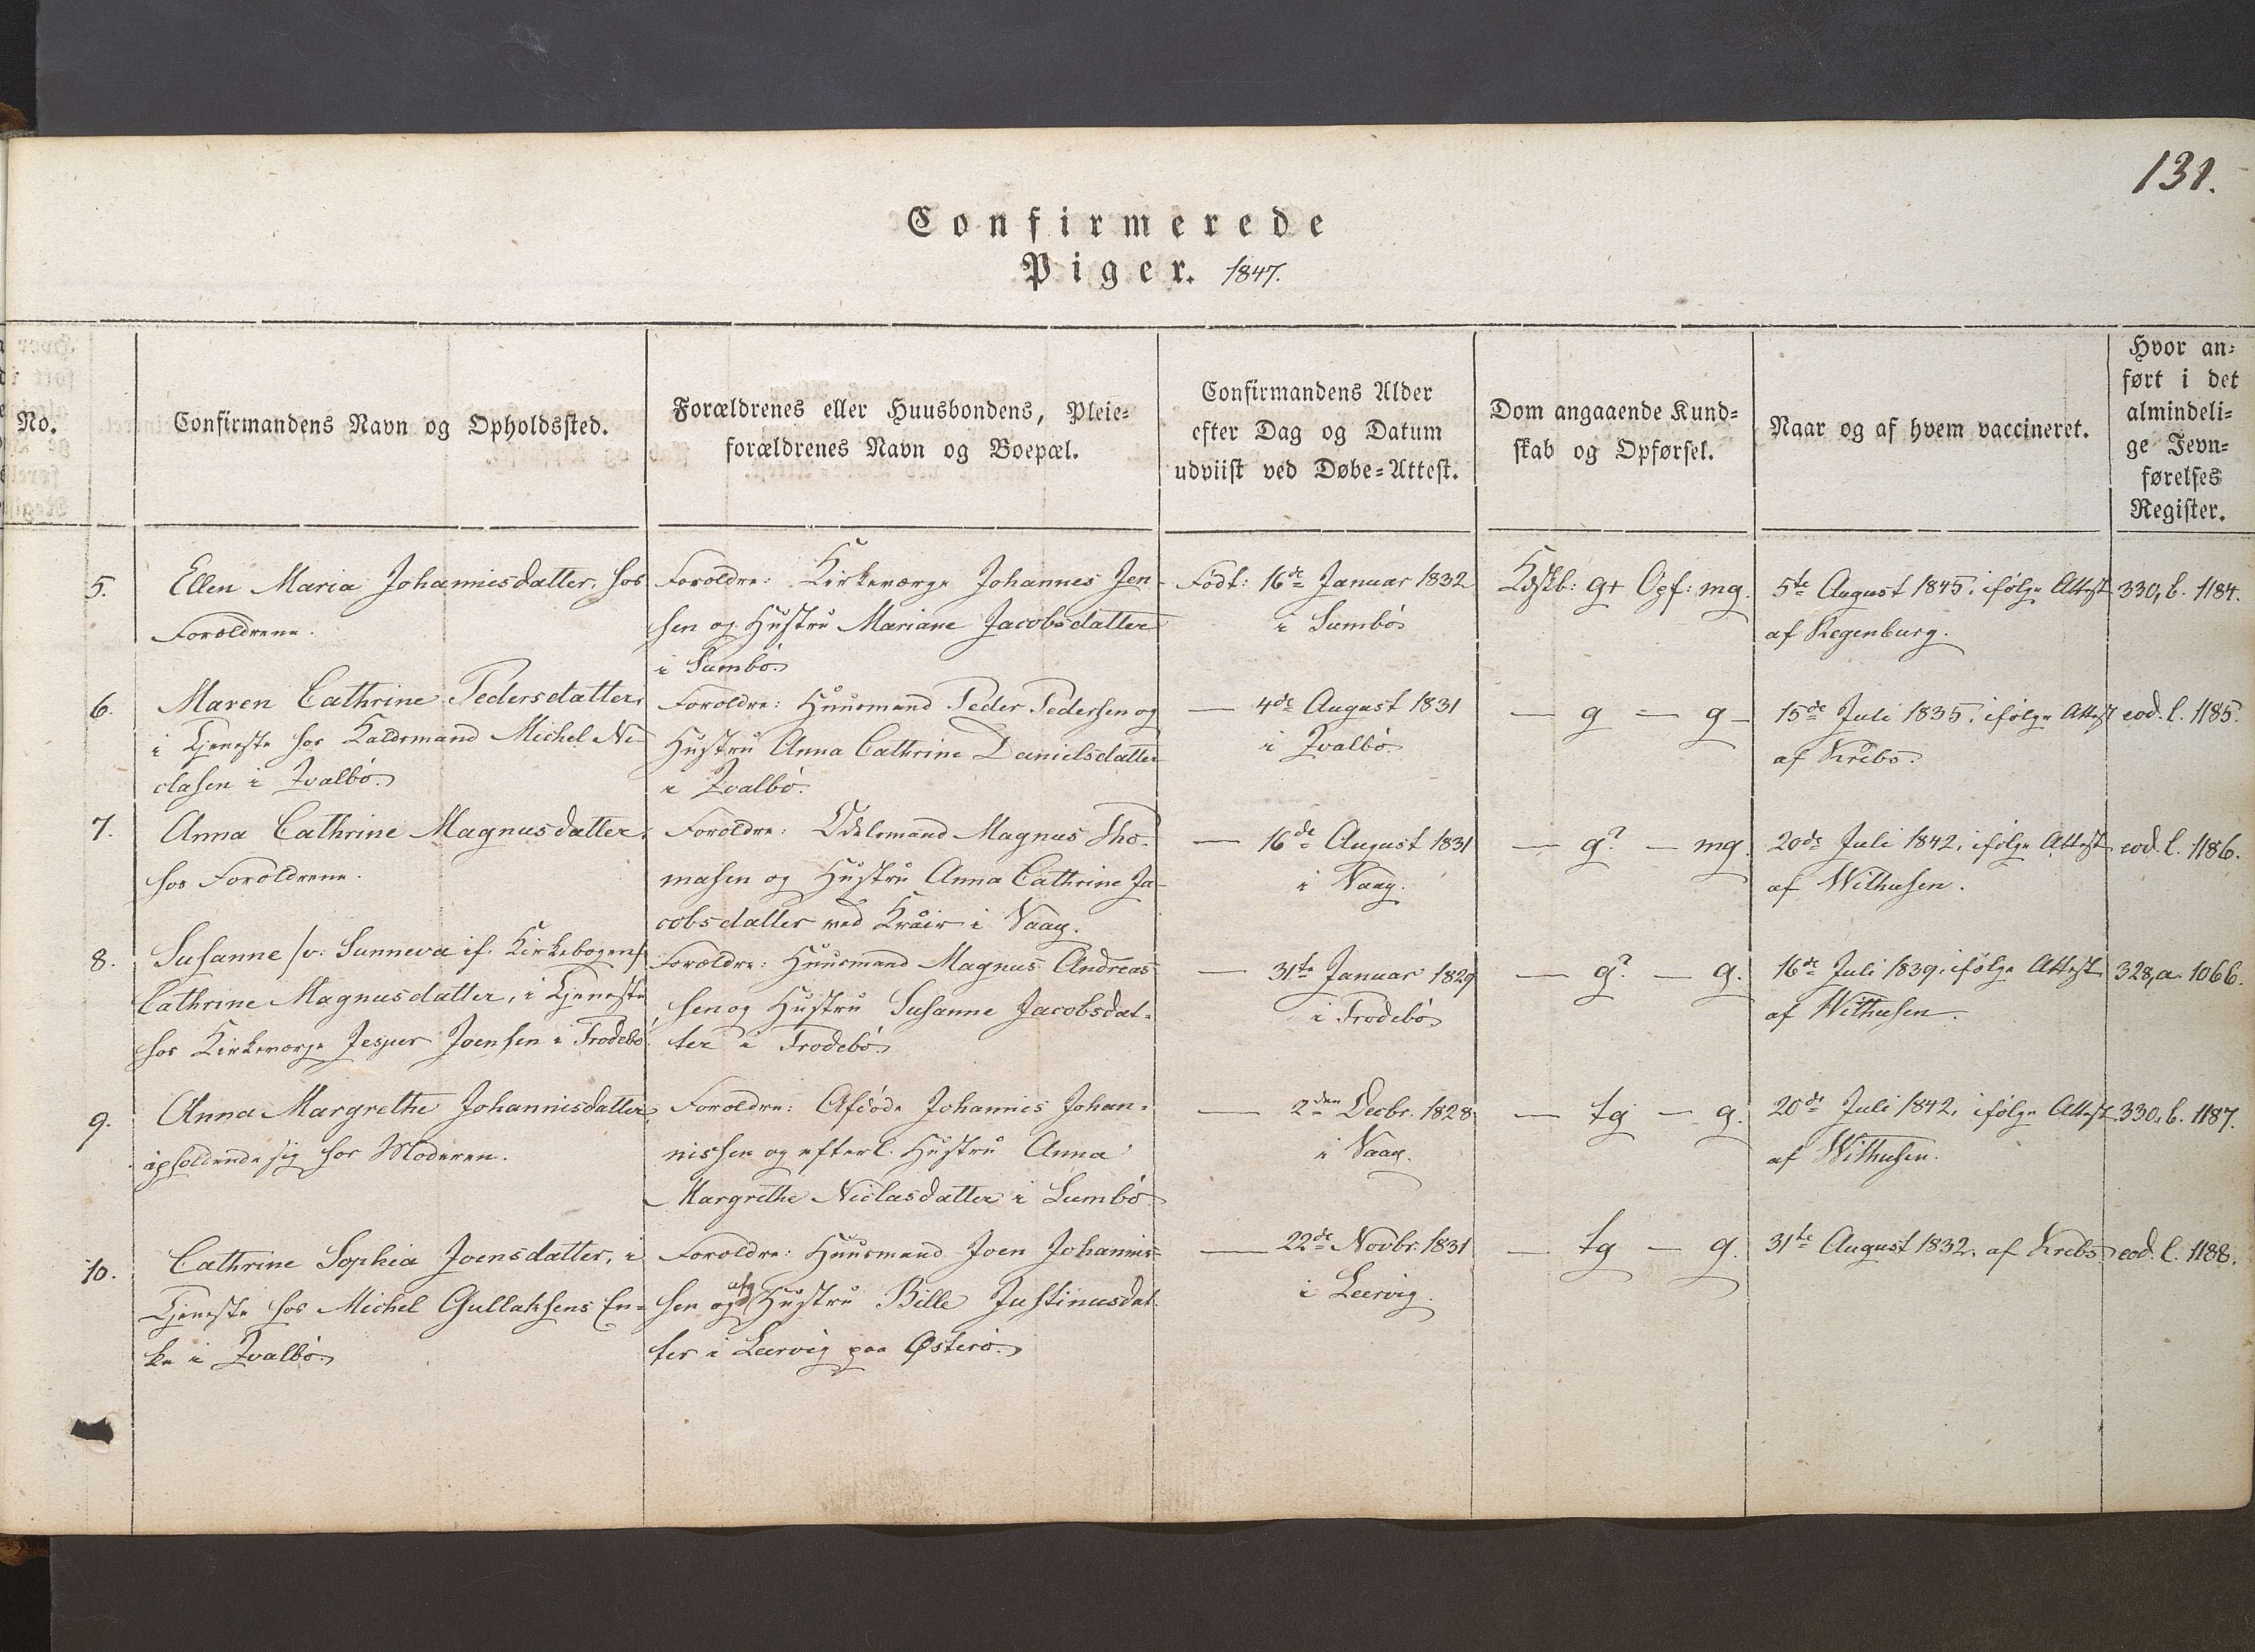 131.
Confirmerede
Piger. 1847.
No.
Confirmandens Navn og Opholdssted.
Forældrenes eller Huusbondens, Pleie=
forældrenes Navn og Boepæl.
Confirmandens Alder
efter Dag og Datum
udviist ved Døbe=Attest.
Dom angaaende Kund=
skab og Opførsel.
Naar og af hvem vaccineret.
Hvor an=
ført i det
almindeli=
ge Jevn=
førelses
Register.
5.
Ellen Maria Johannisdatter, hos
Forældrene.
Forældre: Kirkeværge Johannes Jen-
sen og Hustru Mariane Jacobsdatter
i Sumbø.
Født: 16de Januar 1832
i Sumbø
Kdskb: g+ Opf: mg.
5te August 1845, ifølge Attest
af Regenburg.
330, b. 1184.
6.
Maren Cathrine Pedersdatter,
i Tjeneste hos Kaldsmand Michel Ni-
clasen i Qvalbø.
Forældre: Huusmand Peder Pedersen og
Hustru Anna Cathrine Danielsdatter
i Qvalbø.
— 4de August 1831
i Qvalbø
— g — g —
15de Juli 1835, ifølge Attest
af Krebs.
eod. l. 1185.
7.
Anna Cathrine Magnusdatter,
hos Forældrene.
Forældre: Odelsmand Magnus Tho-
masen og Hustru Anna Cathrine Ja-
cobsdatter ved Kråir i Vaag.
— 16de August 1831
i Vaag.
— g? — mg.
20de Juli 1842, ifølge Attest
af Withusen.
eod. l. 1186.
8.
Susanne /v: Sunneva if. Kirkebogen/
Cathrine Magnusdatter, i Tjeneste
hos Kirkeværge Jesper Joensen i Frodebø.
Forældre: Huusmand Magnus Andreas-
sen og Hustru Susanne Jacobsdat-
ter i Frodebø.
— 31te Januar 1829
i Frodebø
— g? — g.
16de Juli 1839, ifølge Attest
af Withusen.
328, a. 1066.
9.
Anna Margrethe Johannisdatter,
opholdende sig hos Moderen.
Forældre: Afdøde Johannis Johan-
nissen og efterl. Hustru Anna
Margrethe Niclasdatter i Sumbø
— 2den Decbr. 1828
i Vaag.
— tg — g.
20de Juli 1842, ifølge Attest
af Withusen.
330, b. 1187.
10.
Cathrine Sophia Joensdatter, i
Tjeneste hos Michel Gullaksens En-
ke i Qvalbø.
Forældre: Huusmand Joen Johannis-
sen og Hustru Bille Justinusdat-
ter i Leervig paa Østerø.
— 22de Novbr. 1831
i Leervig.
— tg — g.
31te August 1832, af Krebs
eod. l. 1188.